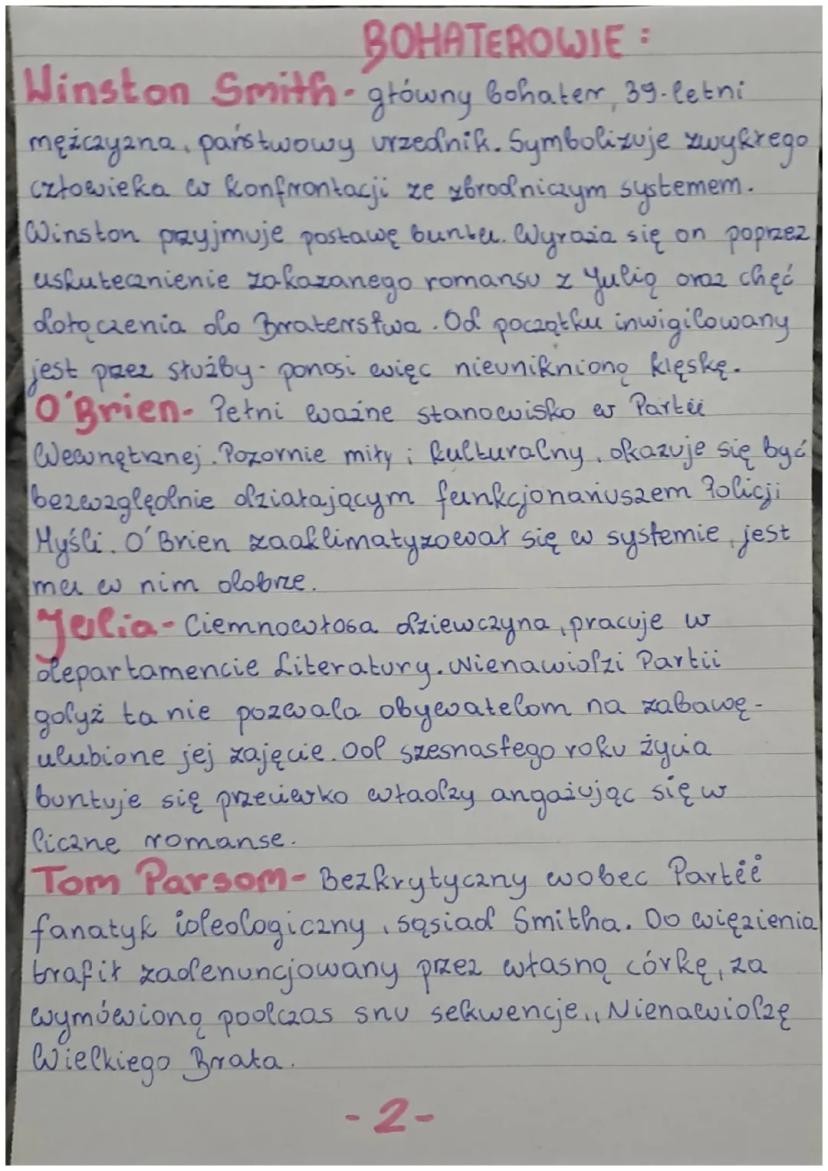 BOHATEROWIE:
Winston Smith - główny bohater, 39-letni
mężczyzna, państwowy urzędnik. Symbolizuje zwykłego
człowieka w konfrontacji ze zbrodniczym systemem.
Winston przyjmuje postawę buntu. Wyraża się on poprzez
uskutecznienie zakazanego romansu z Julią oraz chęć
dołączenia do Braterstwa. Od początku inwigilowany
jest przez służby - ponosi więc nieuniknioną klęskę.
O'Brien - Pełni ważne stanowisko w Partii
Wewnętrznej. Pozornie miły i kulturalny, okazuje się być
bezwzględnie działającym funkcjonariuszem Policji
Myśli. O'Brien zaaklimatyzował się w systemie, jest
mu w nim dobrze.
Julia - Ciemnowłosa dziewczyna, pracuje w
departamencie Literatury. Nienawidzi Partii
gdyż ta nie pozwala obywatelom na zabawę -
ulubione jej zajęcie. Od szesnastego roku życia
buntuje się przeciwko władzy angażując się w
liczne romanse.
Tom Parsom - Bezkrytyczny wobec Partii
fanatyk ideologiczny, sąsiad Smitha. Do więzienia
trafił zadenuncjowany przez własną córkę, za
wymówioną podczas snu sekwencje,, Nienawidzę
Wielkiego Brata.
- 2 -